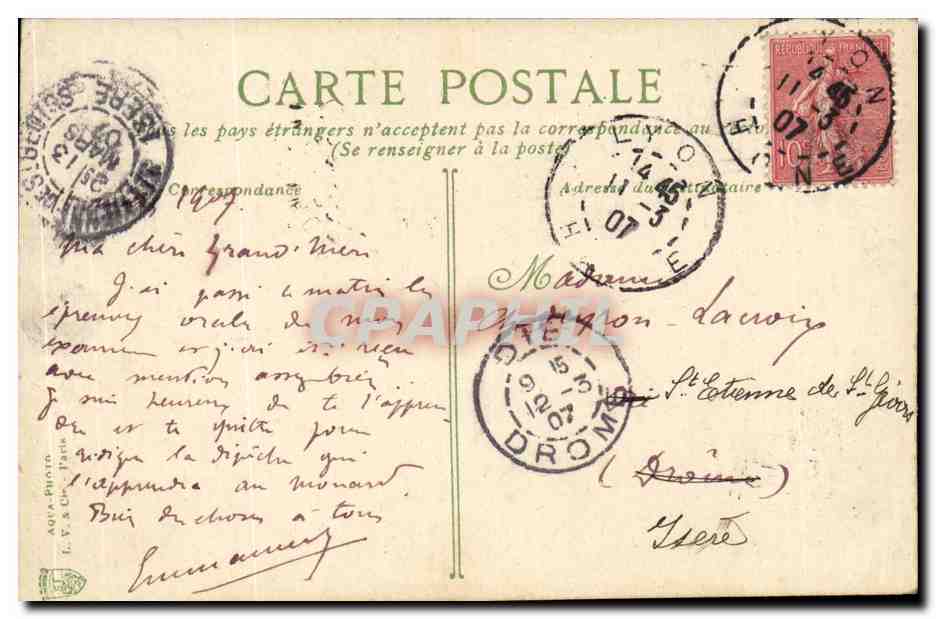 CARTE POSTALE
les pays étrangers n'acceptent pas la correspondance au
(Se renseigner à la poste)
Correspondance
Adresse du Destinataire
RÉPUBLIQUE FRANÇAISE
10
LYON
14 45
11 - 3
07
RHONE
LYON
14 45
11 - 3
07
RHONE
13
MARS
07
ISERE
1907
Ma chère Grand'Mère
J'ai passé ce matin les
épreuves orales de mon
examen et j'ai été reçu
avec mention assez bien.
Je suis heureux de te l'appren
dre et te quitte pour
rédiger la dépêche qui
l'apprendra au
Bien des choses à tous
Emmanuel
Madame
Lacroix
St Etienne de St Geoirs
(Drôme)
Isère
DIE
15
9 12 - 3
07
DROME
CPAPHIL
AQUA-PHOTO
L. V. & Cie, Paris